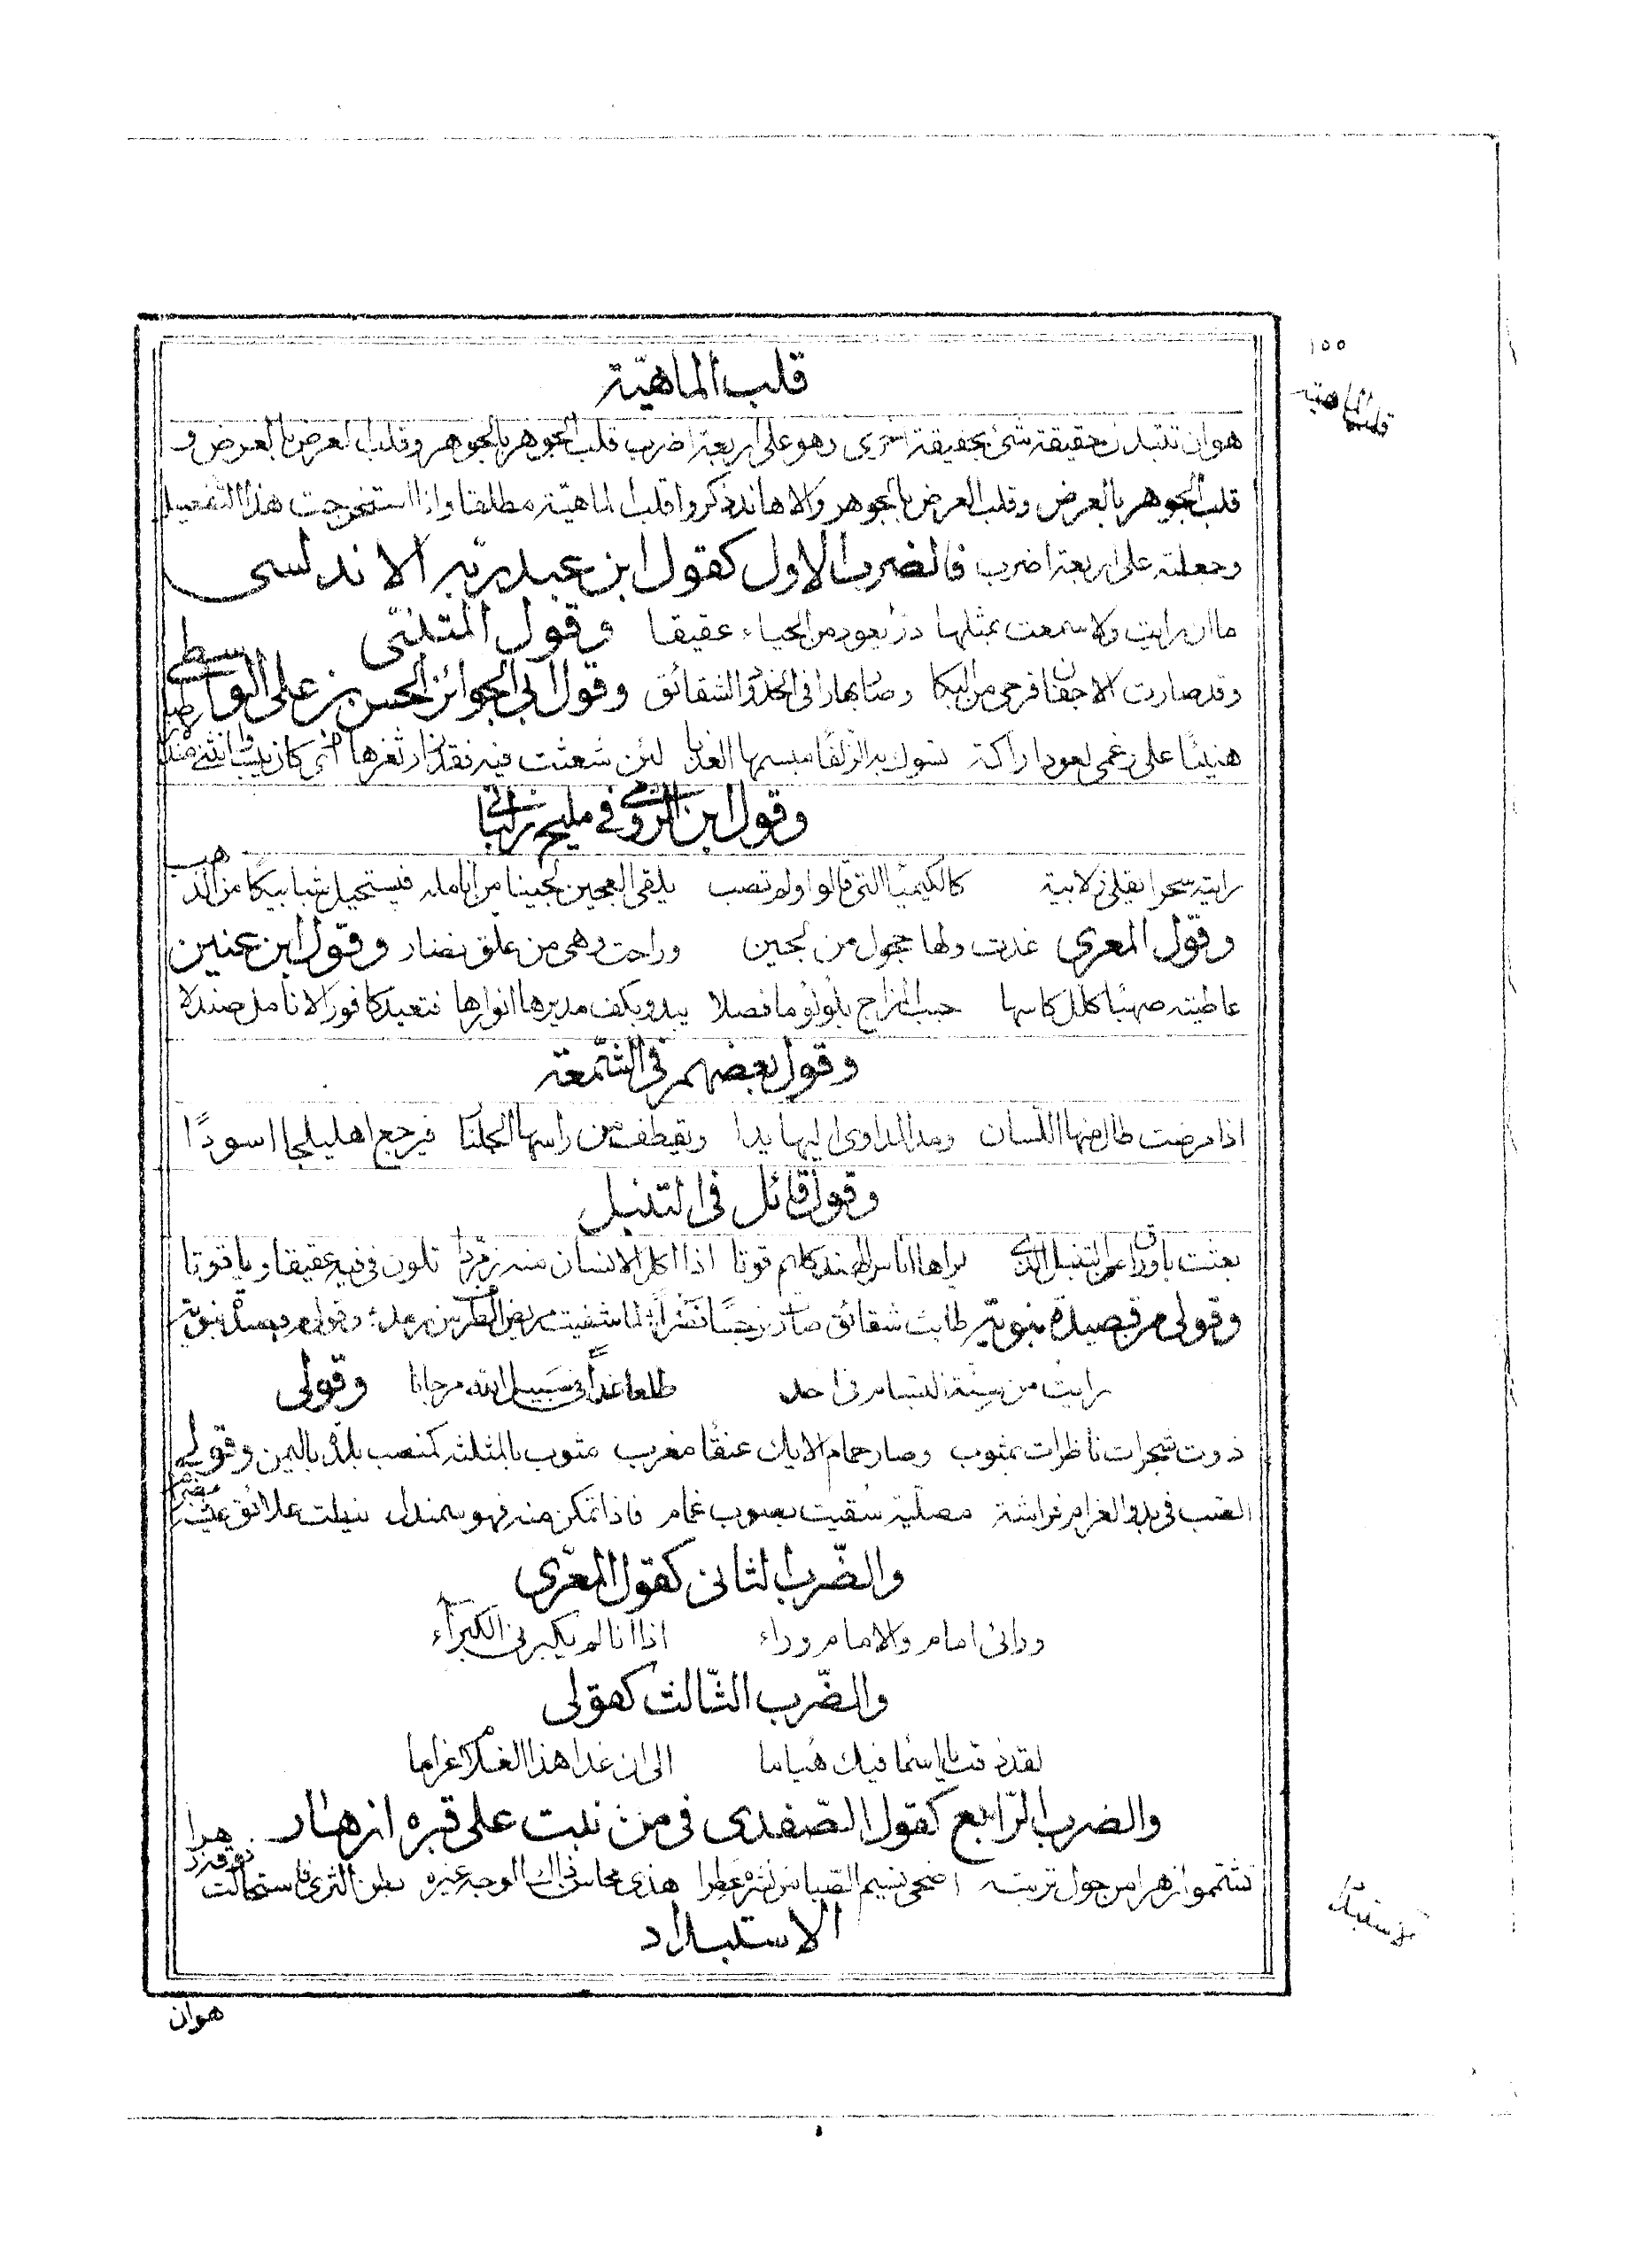 ١٥٥
قلب الماهية
قلب الماهيّة
هو ان تتبدل حقيقة شئ بحقيقة اخرى وهو على اربعة اضرب قلب الجوهر بالجوهر وقلب العرض بالعرض و
قلب الجوهر بالعرض وقلب العرض بالجوهر والاهاند ذكروا قلب الماهيّة مطلقا وانا استخرجت هذا التفصيل
وجعلته على اربعة اضرب فالضرب الاول كقول ابن عبد ربه الاندلسى
ما ان رايت ولا سمعت بمثلها درّ يعود من الحياء عقيقا وقول المتنبّى
وقد صارت الاجفان قرحى من البكا وصار بهارا فى الخدود الشقائق وقول ابى الجوائز الحسن بن على الواسطى
هنيئا على رغمى لعود اراكة تسوك به الزلفا مبسمها العذبا لئن شعثت فيه فقد زار ثغرها
وقول ابن الرومى فى مليح زلبانى
رايته سحرا يقلى زلابية كالكيميا التى قالوا ولم تصب يلقى العجين لجينا من انامله فيستحيل شبابيكا من الذهب
وقول المعرى غدت ولها حجول من لجين وراحت وهى من علق نضار وقول ابن عنين
عاطيته صهبا كلل كاسها حبب المزاج بلؤلؤ ما فصلا يبدو بكف مديرها انوارها فتعيد كافور الانامل صندلا
وقول بعضهم فى الشّمعة
اذا مرضت طال منها اللسان ومد المداوى اليها يدا ويقطف من راسها الجلنا فيرجع اهليلجا اسودًا
وقول قائل فى التنبل
بعثت باوراق من التنبل الذى يراها اناس الهند كلهم قوتا اذا اكل الانسان منه زمرّدا تلون فى فيه عقيقا وياقوتا
وقولى من قصيدة نبوية طابت شقائق صارت نرجسًا نضرًا لما شفيت مريض الطرف من رمد وقولى من قصيدة نبوية
رايت من سنة البتسام فى احد طلعا غدا فى سبيل الله مرجانا وقولى
ذوت شجرات ناظرات بمثوب وصار حمام الايك عنقا مغرب مثوب بالمثلثة كمنصب بلد باليمن وقولى
القلب فى بدو الغرام فراشة فاذا تمكن منه فهو سمندل
والضّرب الثانى كقول المعّرى
ورائى امام والامام وراء اذا انا لم يكبرنى الكبراء
والضّرب الثّالث كقولى
لقد ذقت يا اسما فيك هياما الى ان غدا هذا الغلام غراما
والضرب الرّابع كقول الصّفدى فى من نبت على قبره ازهار
تشتمموا زهرا من حول تربته اضحى نسيم الصبا من نشره عطرا هذى محاسن ذاك الوجه غيره بطن الثرى فاستحالت فوقه زهرا
الاستبداد
هوان